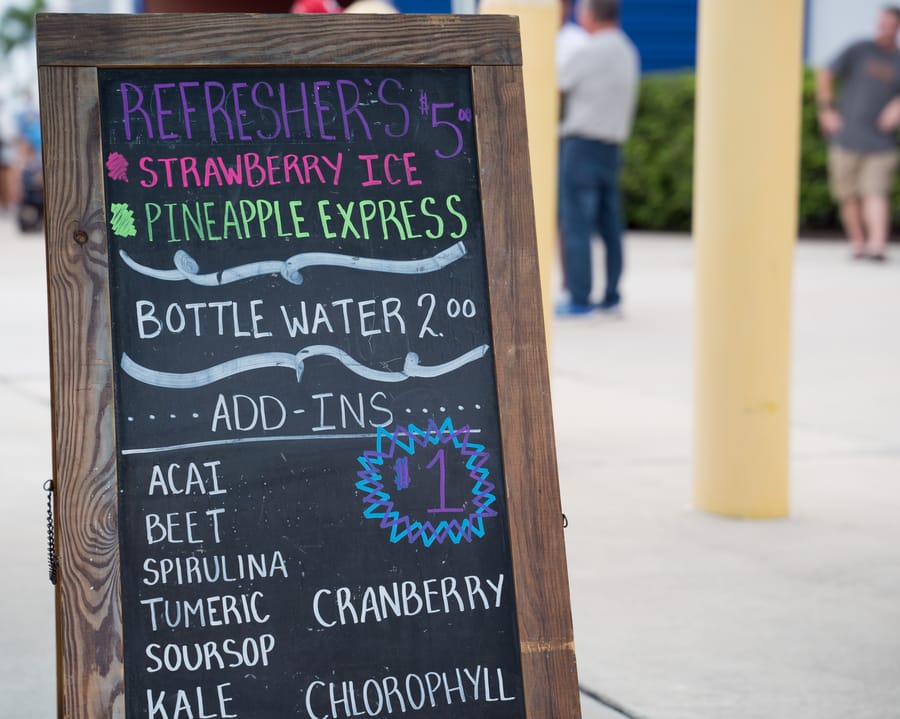 REFRESHER'S $5.00
STRAWBERRY ICE
PINEAPPLE EXPRESS
BOTTLE WATER 2.00
....ADD-INS.....
$1
ACAI
BEET
SPIRULINA
TUMERIC CRANBERRY
SOURSOP
KALE CHLOROPHYLL